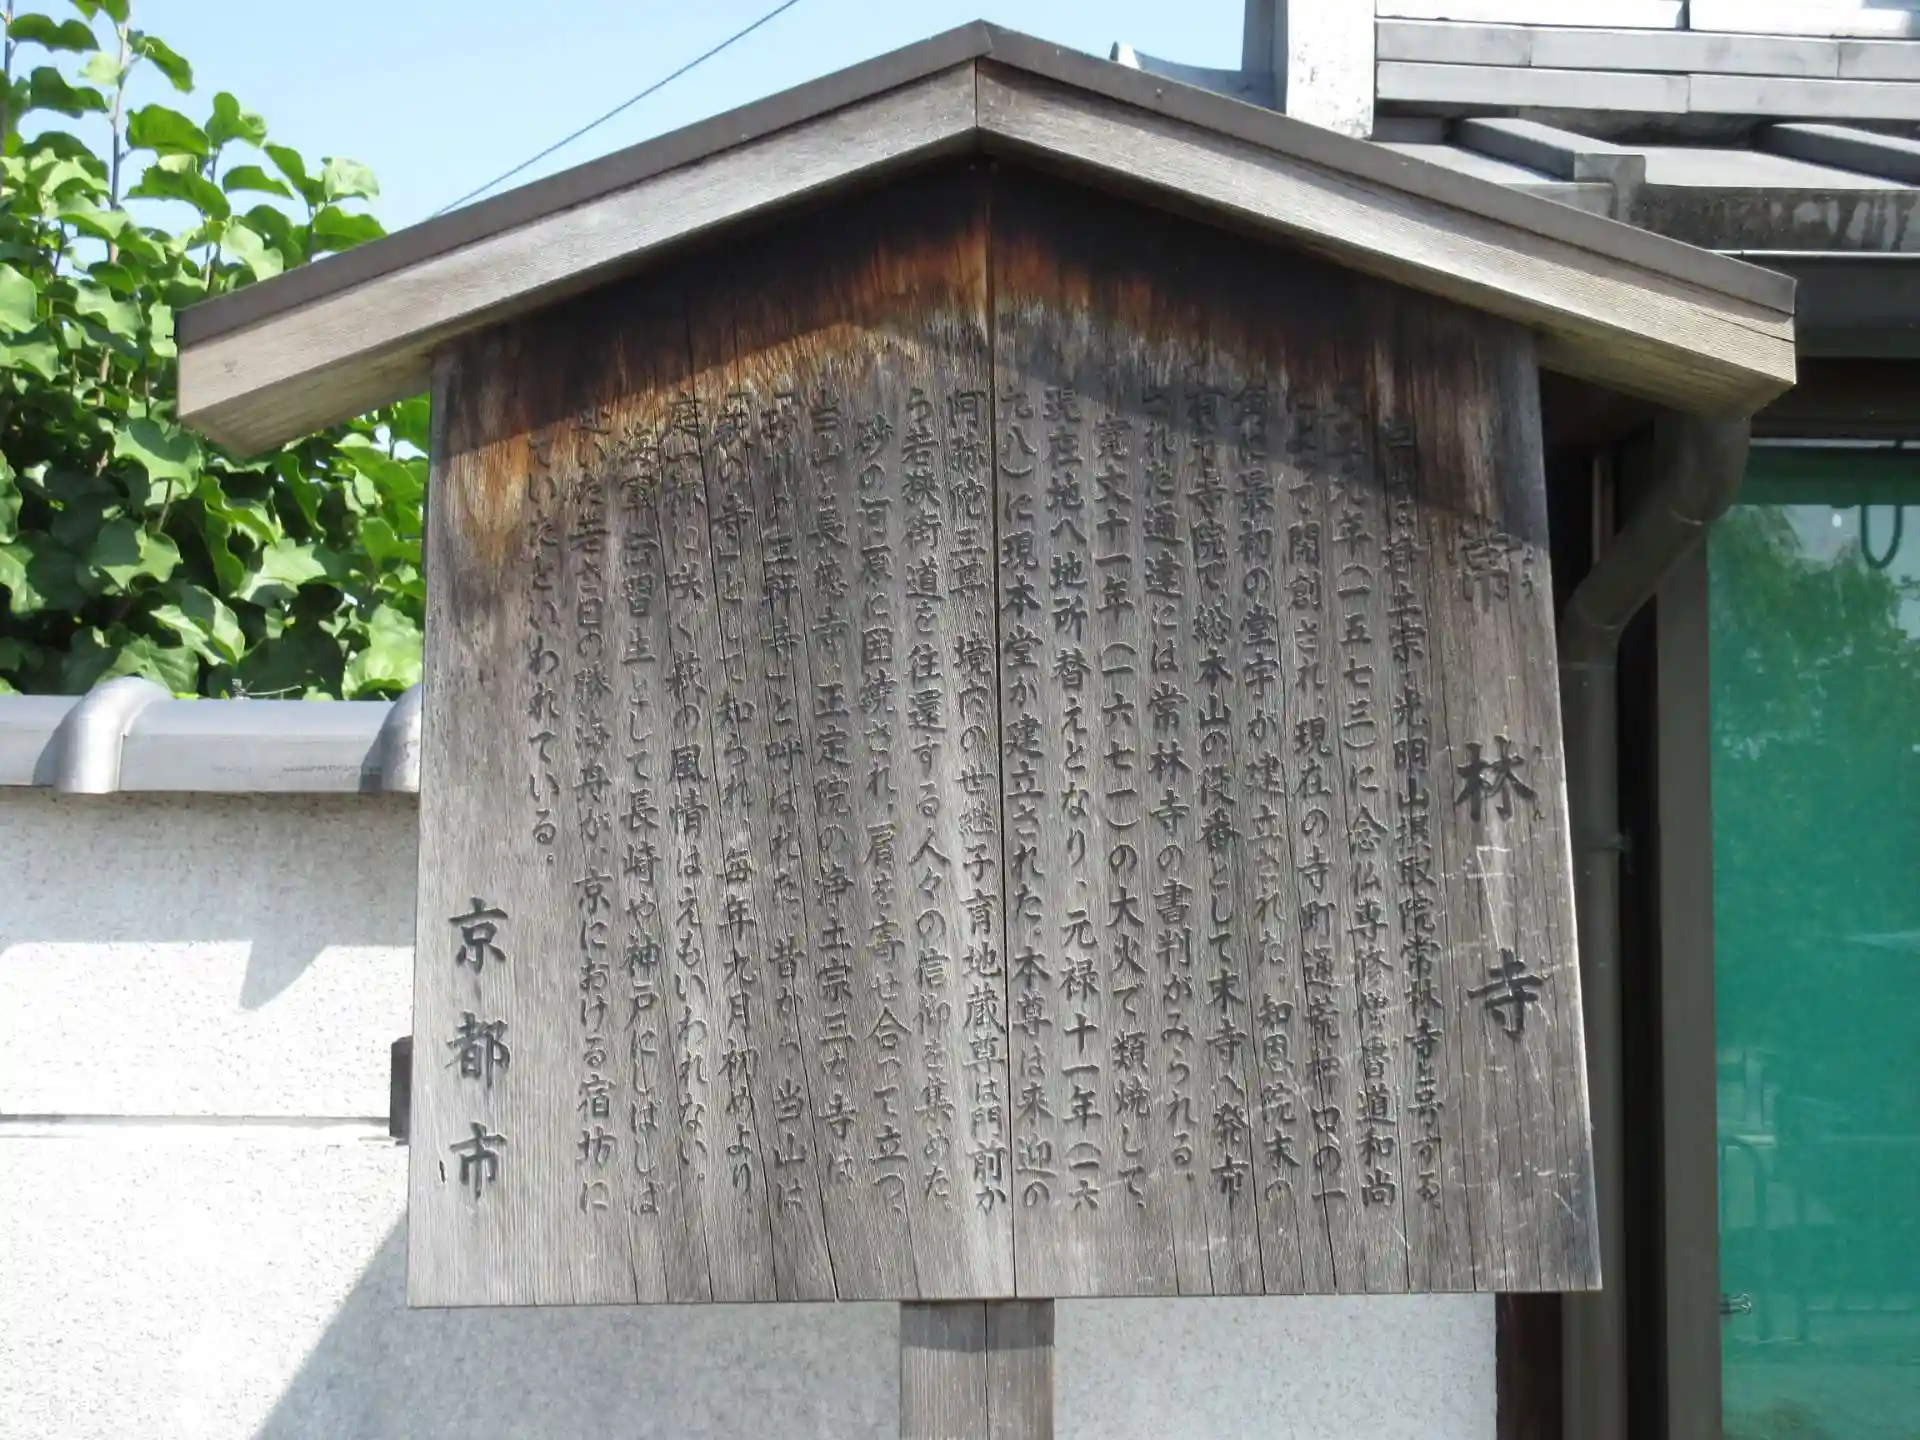 常林寺
当山は浄土宗・光明山摂取院常林寺と号する。
天正元年(一五七三)に念仏専修僧 道和尚
によって開創され、現在の寺町通荒神口の一
角に最初の堂宇が建立された。知恩院末の
有力寺院で、総本山の役番として末寺へ発布
された通達には常林寺の書判がみられる。
寛文十一年(一六七一)の大火で類焼して、
現在地へ地所替えとなり、元禄十一年(一六
九八)に現本堂が建立された。本尊は来迎の
阿弥陀三尊、境内の世継子育地蔵尊は門前か
う若狭街道を往還する人々の信仰を集めた。
砂の河原に囲繞され、肩を寄せ合って立つ、
当山・長徳寺・正定院の浄土宗三ヶ寺は、
「砂川の三軒寺」と呼ばれた。昔から当山は
「萩の寺」として知られ、毎年九月初めより、
庭一面に咲く萩の風情はえもいわれない。
海軍伝習生として長崎や神戸にしばしば
赴いた若き日の勝海舟が、京における宿坊に
していたといわれている。
京都市